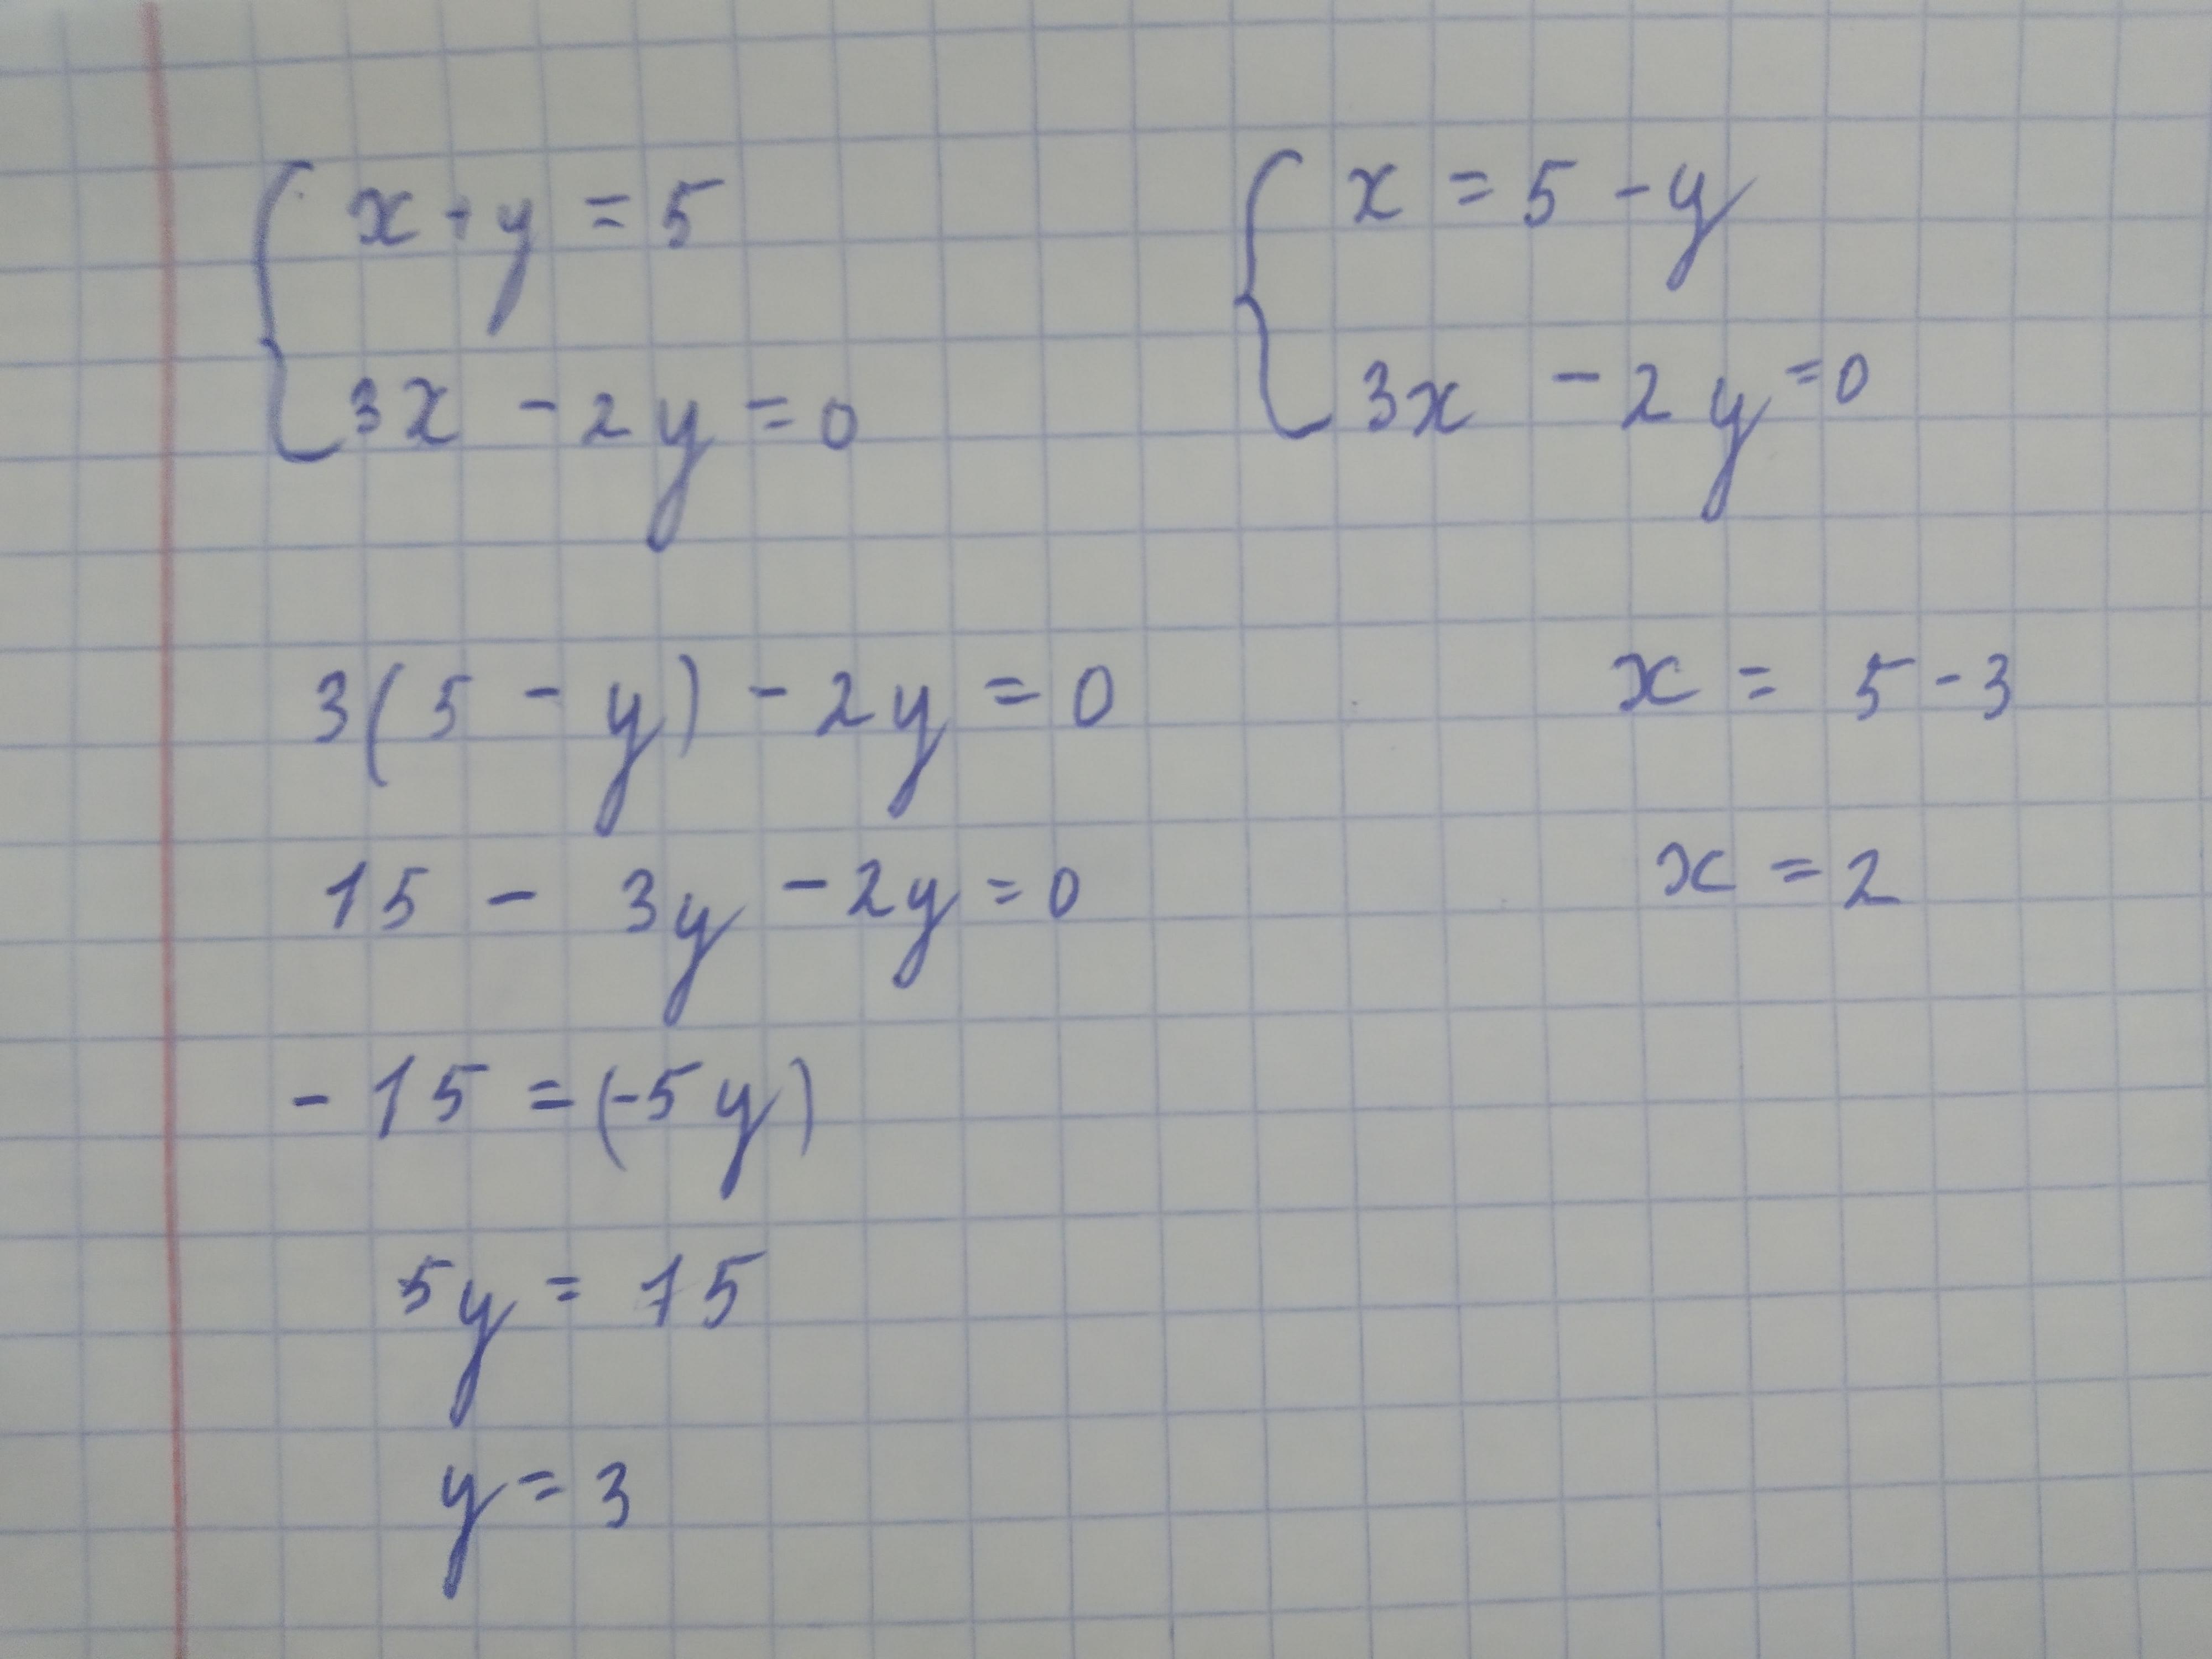 x + y = 5
3x - 2y = 0
x = 5 - y
3x - 2y = 0
3(5 - y) - 2y = 0
15 - 3y - 2y = 0
- 15 = (-5y)
5y = 15
y = 3
x = 5 - 3
x = 2